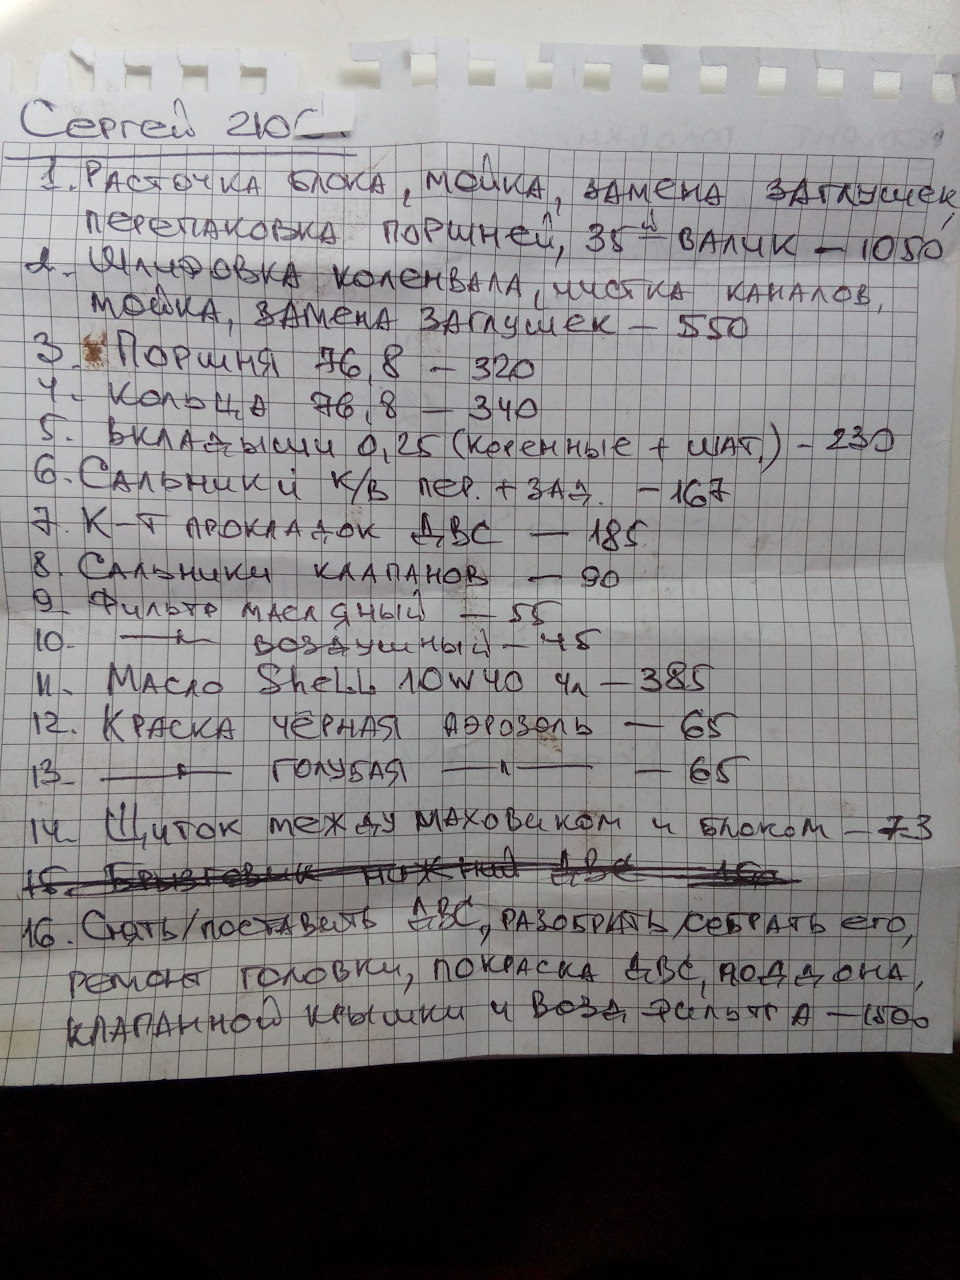 Сергей 2105.
1. Расточка блока, мойка, замена заглушек,
перепаковка поршней, 35й валик – 1050
2. Шлифовка коленвала, чистка каналов,
мойка, замена заглушек – 550
3. Поршня 76,8 – 320
4. Кольца 76,8 – 340
5. Вкладыши 0,25 (коренные + шат.) – 230
6. Сальники к/в пер. + зад. – 167
7. К-т прокладок ДВС – 185
8. Сальники клапанов – 90
9. Фильтр масляный – 55
10. —〃— воздушный – 45
11. Масло Shell 10W40 4л – 385
12. Краска чёрная аэрозоль – 65
13. —〃— голубая —〃— – 65
14. Щиток между маховиком и блоком – 73
15. Брызговик нижний ДВС
16. Снять/поставить ДВС, разобрать/собрать его,
ремонт головки, покраска ДВС, поддона,
клапанной крышки и возд. фильтра – 1500